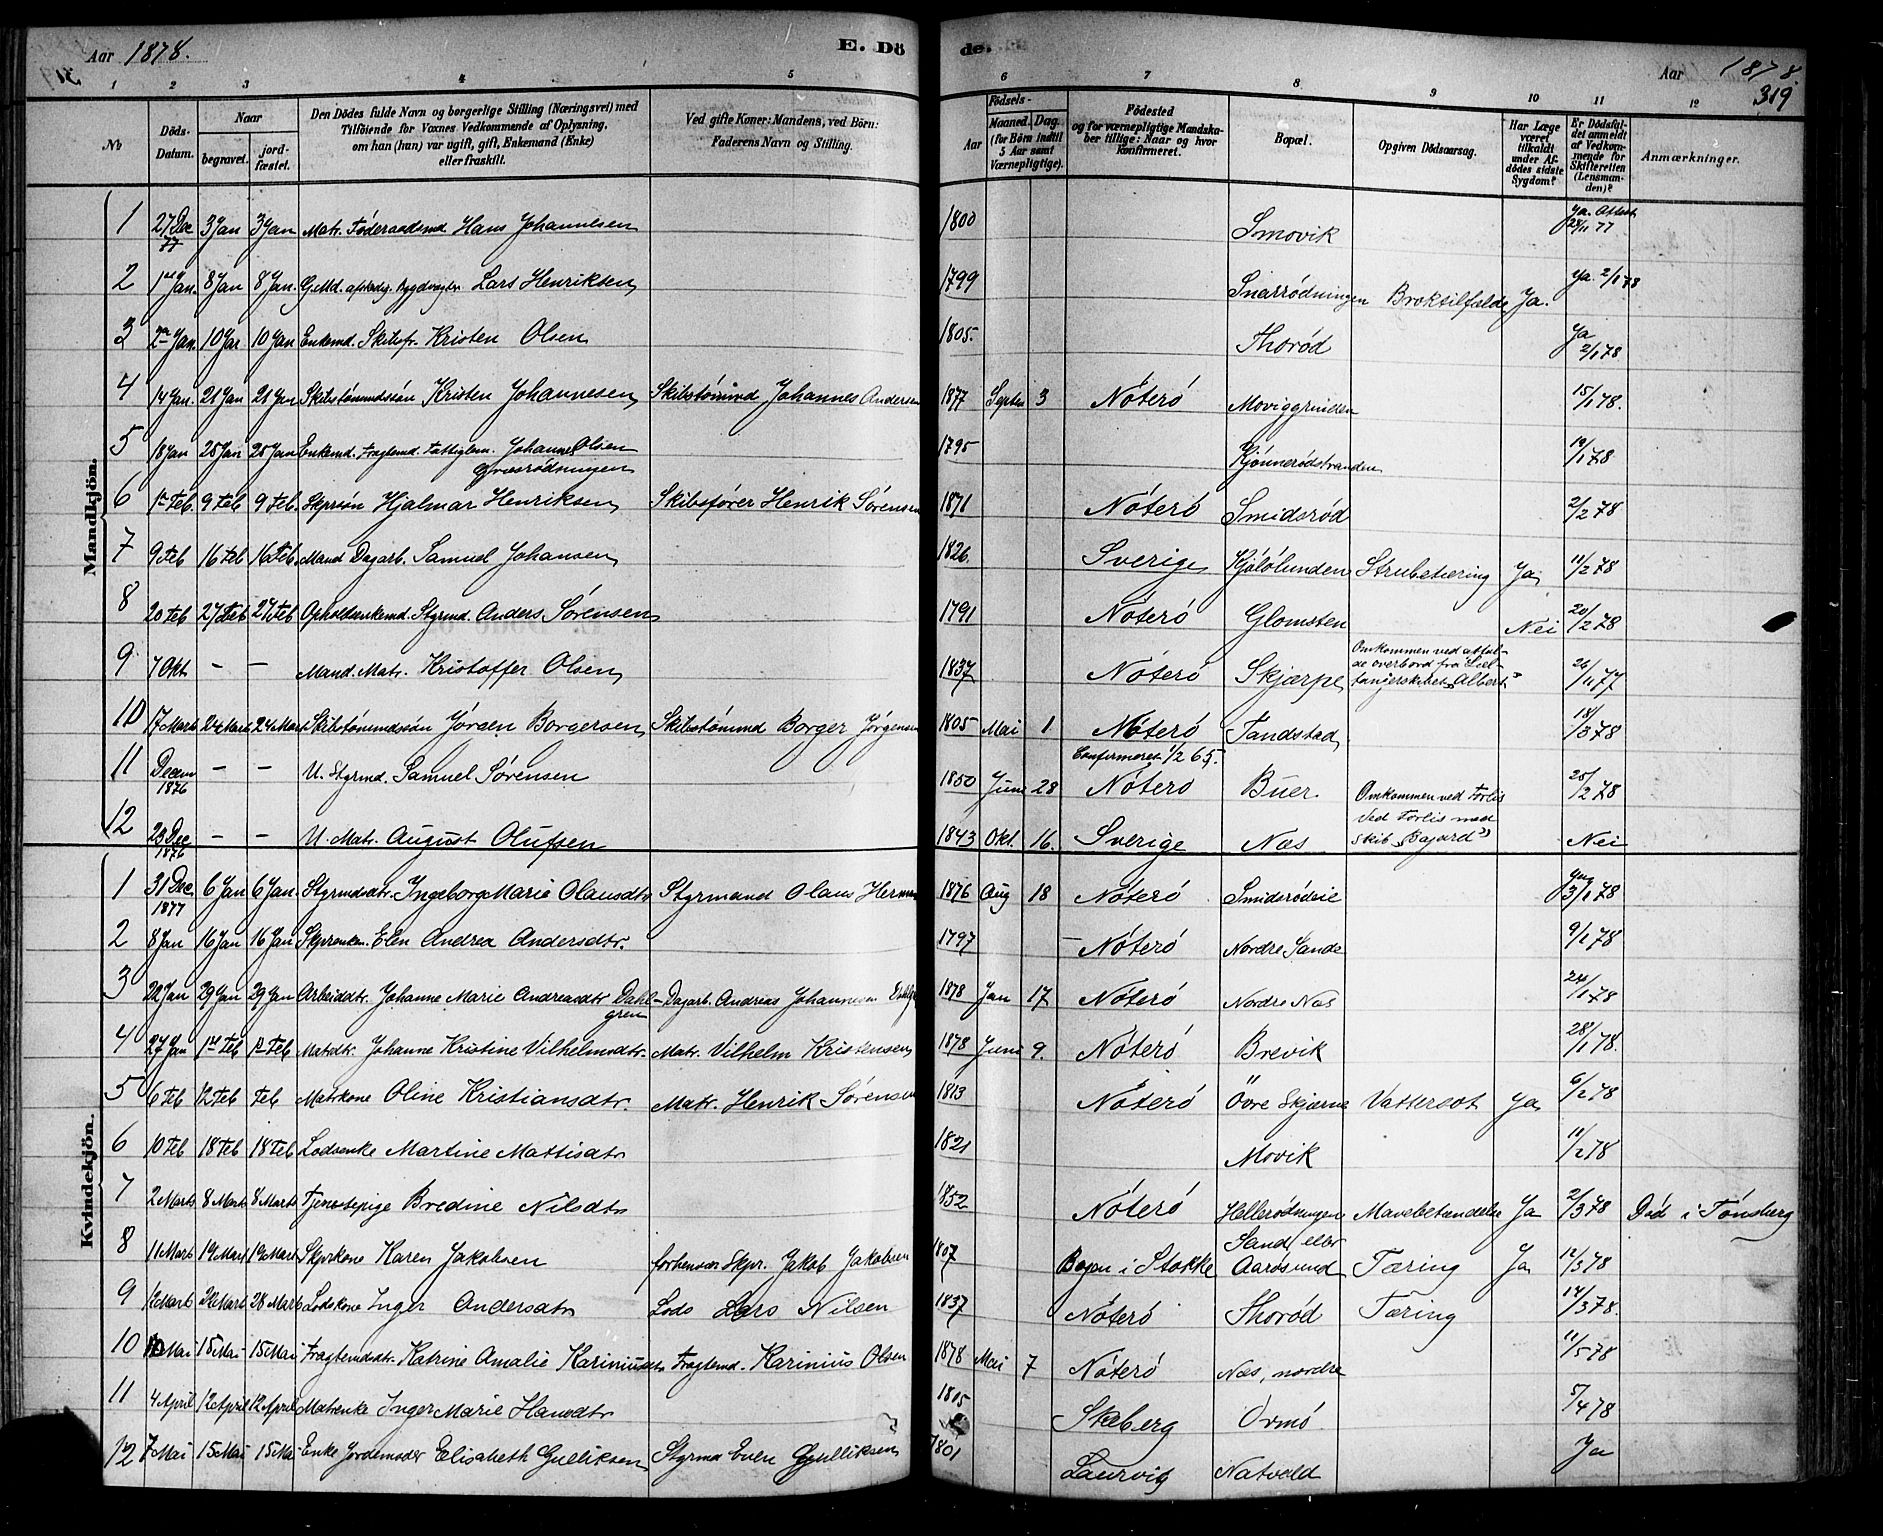 Aar 1878.
E. Dö
de.
Aar 1878.
319
1 2 3 4 5 6 7 8 9 10 11 12
No
Döds-Datum.
Naar
begravet.
jordfæstet.
Den Dödes fulde Navn og borgerlige Stilling (Næringsvei) med
Tilföiende for Voxnes Vedkommende af Oplysning,
om han (hun) var ugift, gift, Enkemand (Enke)
eller fraskilt.
Ved gifte Koner: Mandens, ved Börn:
Faderens Navn og Stilling.
Födsels-
Aar
Maaned. Dag.
(for Börn indtil
5 Aar samt
Værnepligtige).
Födested
og for værnepligtige Mandska-
ber tillige: Naar og hvor
konfirmeret.
Bopæl.
Opgiven Dödsaarsag.
Har Læge
været
tilkaldt
under Af-
dödes sidste
Sygdom?
Er Dödsfal-
det anmeldt
af Vedkom-
mende for
Skifteretten
(Lensman-
den)?
Anmærkninger.
Mandkjön.
1 27 Dec 77 3 Jan 3 Jan Matr. Föderaadsmd Hans Johannesen 1800 Smovik Ja. Attest 28/11 77
2 1ste Jan. 8 Jan 8 Jan. G.Md. afskedig. Bygdevægter Lars Henriksen 1799 Snarrödningen Broktilfælde Ja. Ja. 2/1 78
3 2den Jan. 10 Jan 10 Jan Enkemd. Skibsf. Kristen Olsen 1805. Thoröd Ja 2/1 78
4 14 Jan. 21 Jan 21 Jan Skibstömmdssön Kristen Johannesen Skibstömmd Johannes Andersen 1877 Septbr 3 Nöterö Moviggrinden 15/1 78.
5 18 Jan 25 Jan 25 Jan Enkemd. Fragtemd. Fattiglem. Johannes Olsen Græsrödningen 1795 Kjönnerödstranden 19/1 78
6 1ste Feb. 9 Feb 9 Feb. Skprsön Hjalmar Henriksen Skibsförer Henrik Sörensen 1871 Nöterö Smidsröd 2/2 78
7 9 Feb 16 Feb 16 Feb. Mand Dagarb. Samuel Johansen 1826. Sverige Kjölölunden Strubetæring Ja 11/2 78
8 20 Feb 27 Feb 27 Feb Opholdsenkemd. Styrmd. Anders Sörensen 1791 Nöterö Glomsten Nei 20/2 78
9 7 Okt – – Mand. Matr. Kristoffer Olsen 1837 Nöterö Skjærpe Omkommen ved at fal-
de overbord fra Sæl-
fangerskibet „Albert” 26/11 77
10 17 Marts 24 Marts 24 Marts Skibstömmdssön Jörgen Borgersen Skibstömmd Borger Jörgensen 1805 Mai 1. Nöterö Tandstad 18/3 78
11 Decmr 1876 – – U. Styrmd. Samuel Sörensen 1850 Juni 28 Confirmeret 1/2 65. Nöterö Buer. Omkommen ved Forlis 25/2 78
12 23 Dec 1876 – – U. Matr. August Olufsen 1843 Okt. 16. Sverige Næs ved Forlis med
Skib „Bajard” Nei
Kvindekjön.
1 31 Dec 1877 6 Jan 6 Jan. Styrmdsdtr. Ingeborg Marie Olausdtr Styrmand Olaus Herman 1876 Aug 18 Nöterö Smidsrödeie Ja 3/1 78
2 8 Jan 16 Jan 16 Jan Skprenken. Elen Andrea Andersdtr. 1797 – Nöterö Nordre Sande 9/1 78
3 22 Jan 29 Jan 29 Jan Arbeiddtr. Johanne Marie Andreasdtr Dahl-
gren Dagarb. Andreas Johannesen 1878 Jan 17 Nöterö Nordre Næs 24/1 78
4 27 Jan 1ste Feb 1ste Feb Matrsdtr. Johanne Kristine Vilhelmsdtr. Matr. Vilhelm Kristensen 1878 Juni 9. Nöterö Brevik 28/1 78.
5 6 Feb 12 Feb Feb Matrkone Oline Kristiansdtr. Matr. Henrik Sörensen 1813 Nöterö Övre Skjærpe Vattersot Ja 6/2 78
6 10 Feb 18 Feb 18 Feb Lodsenke Martine Mattisdtr 1821 Movik 11/2 78
7 2 Marts 8 Marts 8 Marts Tjenestepige Bredine Nilsdtr 1852 Nöterö Hellerödningen Mavebetændelse Ja 2/3 78 Död i Tönsberg
8 11 Marts 19 Marts 19 Marts Skprkone Karen Jakobsen forhenvær Skpr. Jakob Jakobsen 1807 Bogen i Stokke Sand, eller
Aarösund Tæring Ja 12/3 78
9 12 Marts 28 Marts 28 Marts Lodskone Inger Andersdtr Lods Lars Nilsen 1837 Nöterö Thoröd Tæring 14/3 78.
10 10 Mai 15 Mai 15 Mai Fragtemdsdtr. Katrine Amalie Kariniusdtr Fragtemd. Karinius Olsen 1878 Mai 7 Nöterö Næs, nordre 11/5 78
11 4 April 12 April 12 April Matrenke Inger Marie Hansdtr 1805 Skeberg Ormö 5/4 78
12 7 Mai 15 Mai 15 Mai Enke Jordemoder Elisabeth Gulliksen Styrmd Even Gulliksen 1801 Laurvig Natvald Ja